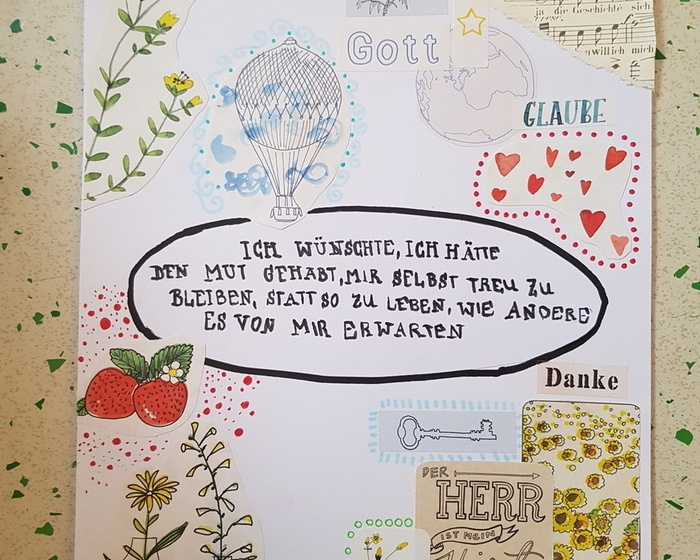 in die Geschichte sich
willich mich
Gott
GLAUBE
ICH WÜNSCHTE, ICH HÄTTE
DEN MUT GEHABT, MIR SELBST TREU ZU
BLEIBEN, STATT SO ZU LEBEN, WIE ANDERE
ES VON MIR ERWARTEN
Danke
DER
HERR
IST MEIN
Hirte